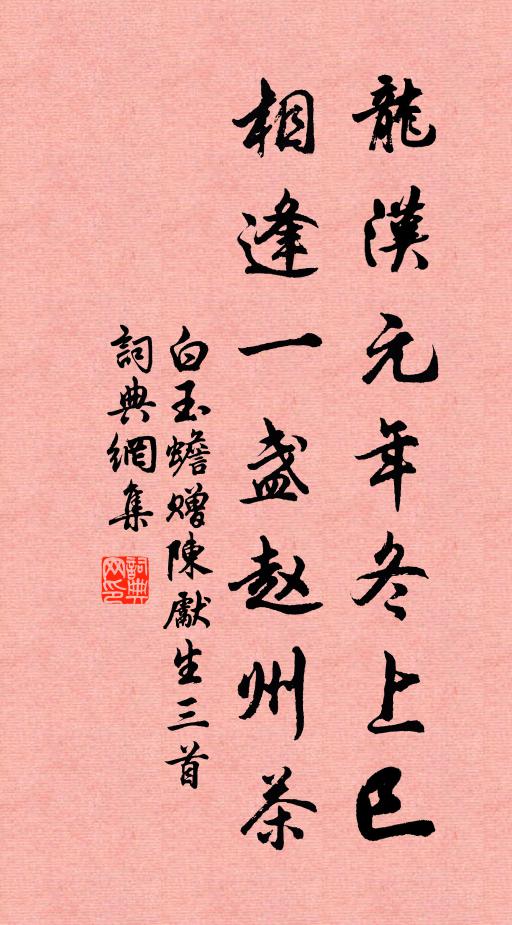 龍漢元年冬上巳
相逢一盞赵州茶
白玉蟾赠陳獻生三首
詞典網集
詞典网印